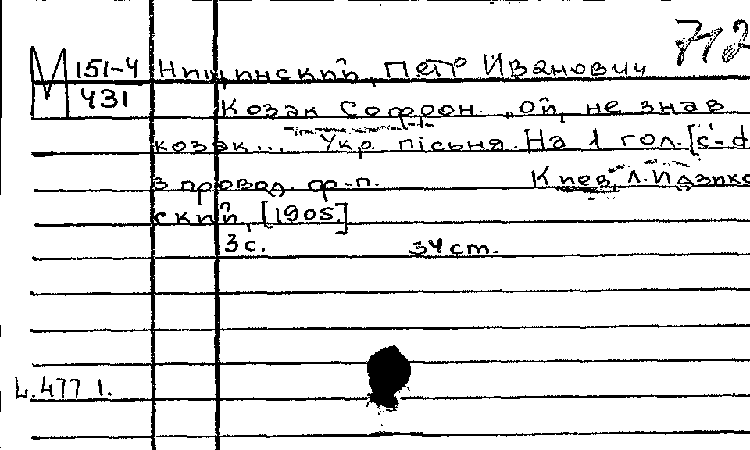 712
М 151-4 Нищинский, Петр Иванович
431
Козак Софрон. "Ой, не знав
козак... Укр. пісьня. На 1 гол. [c'-d
з провод. ф-п. Киев, Л. Идзиков
ский, [1905]
3 с. 34 ст.
L.477 1.